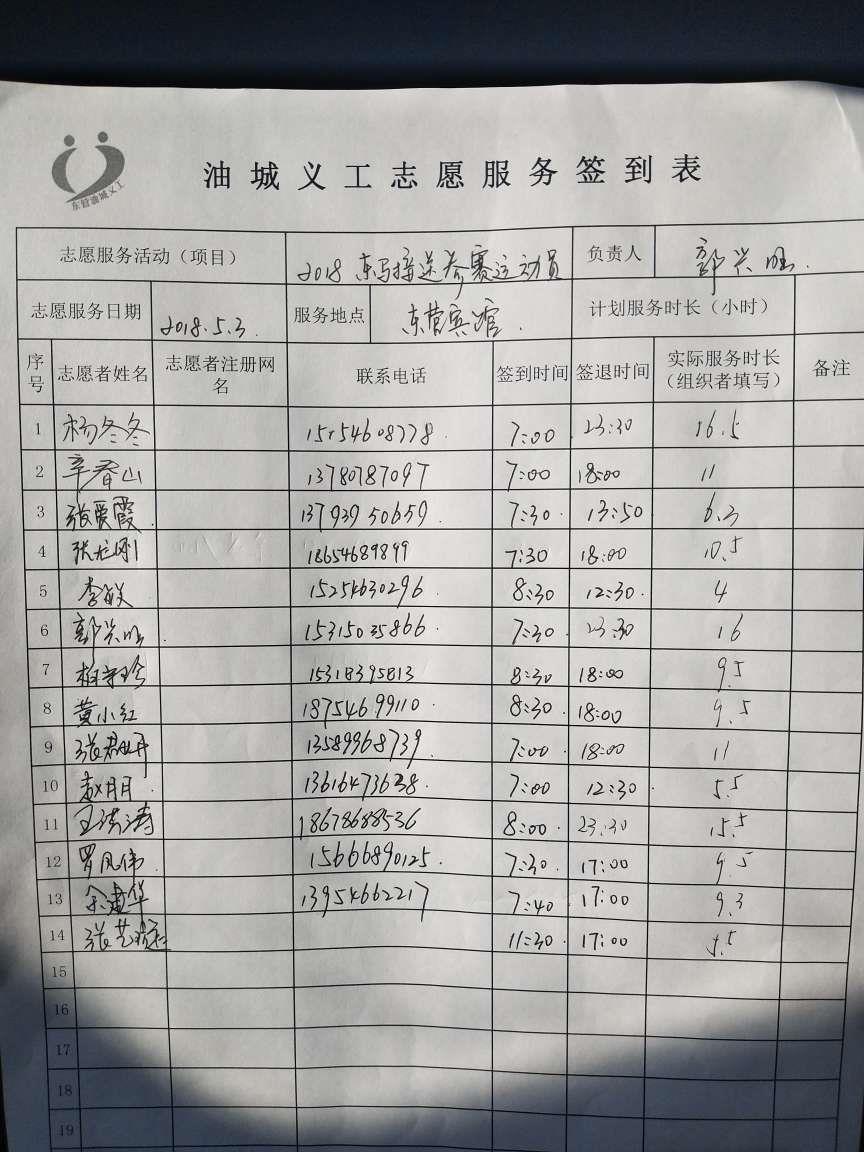 东营油城义工
油城义工志愿服务签到表
志愿服务活动（项目） 2018东马接送参赛运动员 负责人 郭兴旺.
志愿服务日期 2018.5.3. 服务地点 东营宾馆. 计划服务时长（小时）
序号 志愿者姓名 志愿者注册网名 联系电话 签到时间 签退时间 实际服务时长（组织者填写） 备注
1 杨冬冬 15154608778. 7:00 23:30 16.5
2 辛春山 13780787097 7:00 18:00 11
3 张爱霞. 13793950659. 7:30. 13:50 6.3
4 18654689899 7:30 18:00 10.5
5 李敏 15254630296 8:30 12:30. 4
6 郭兴旺. 15315035866. 7:30 23:30 16
7 15318395813 8:30 18:00 9.5
8 黄小红 18754699110. 8:30. 18:00 9.5
9 13589968739. 7:00. 18:00 11
10 赵月月. 13616473638. 7:00 12:30. 5.5
11 王洪涛 18678688536 8:00. 23:30 15.5
12 罗凤伟. 15666890125. 7:30. 17:00 9.5
13 余建华 13954662217 7:40 17:00 9.3
14 11:30. 17:00 5.5
15
16
17
18
19